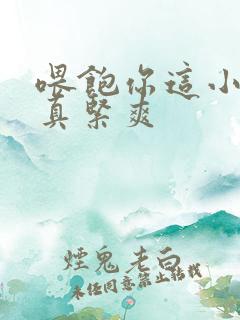 喂飽你這小
真緊爽
煙鬼老白
未任同意禁止轉載